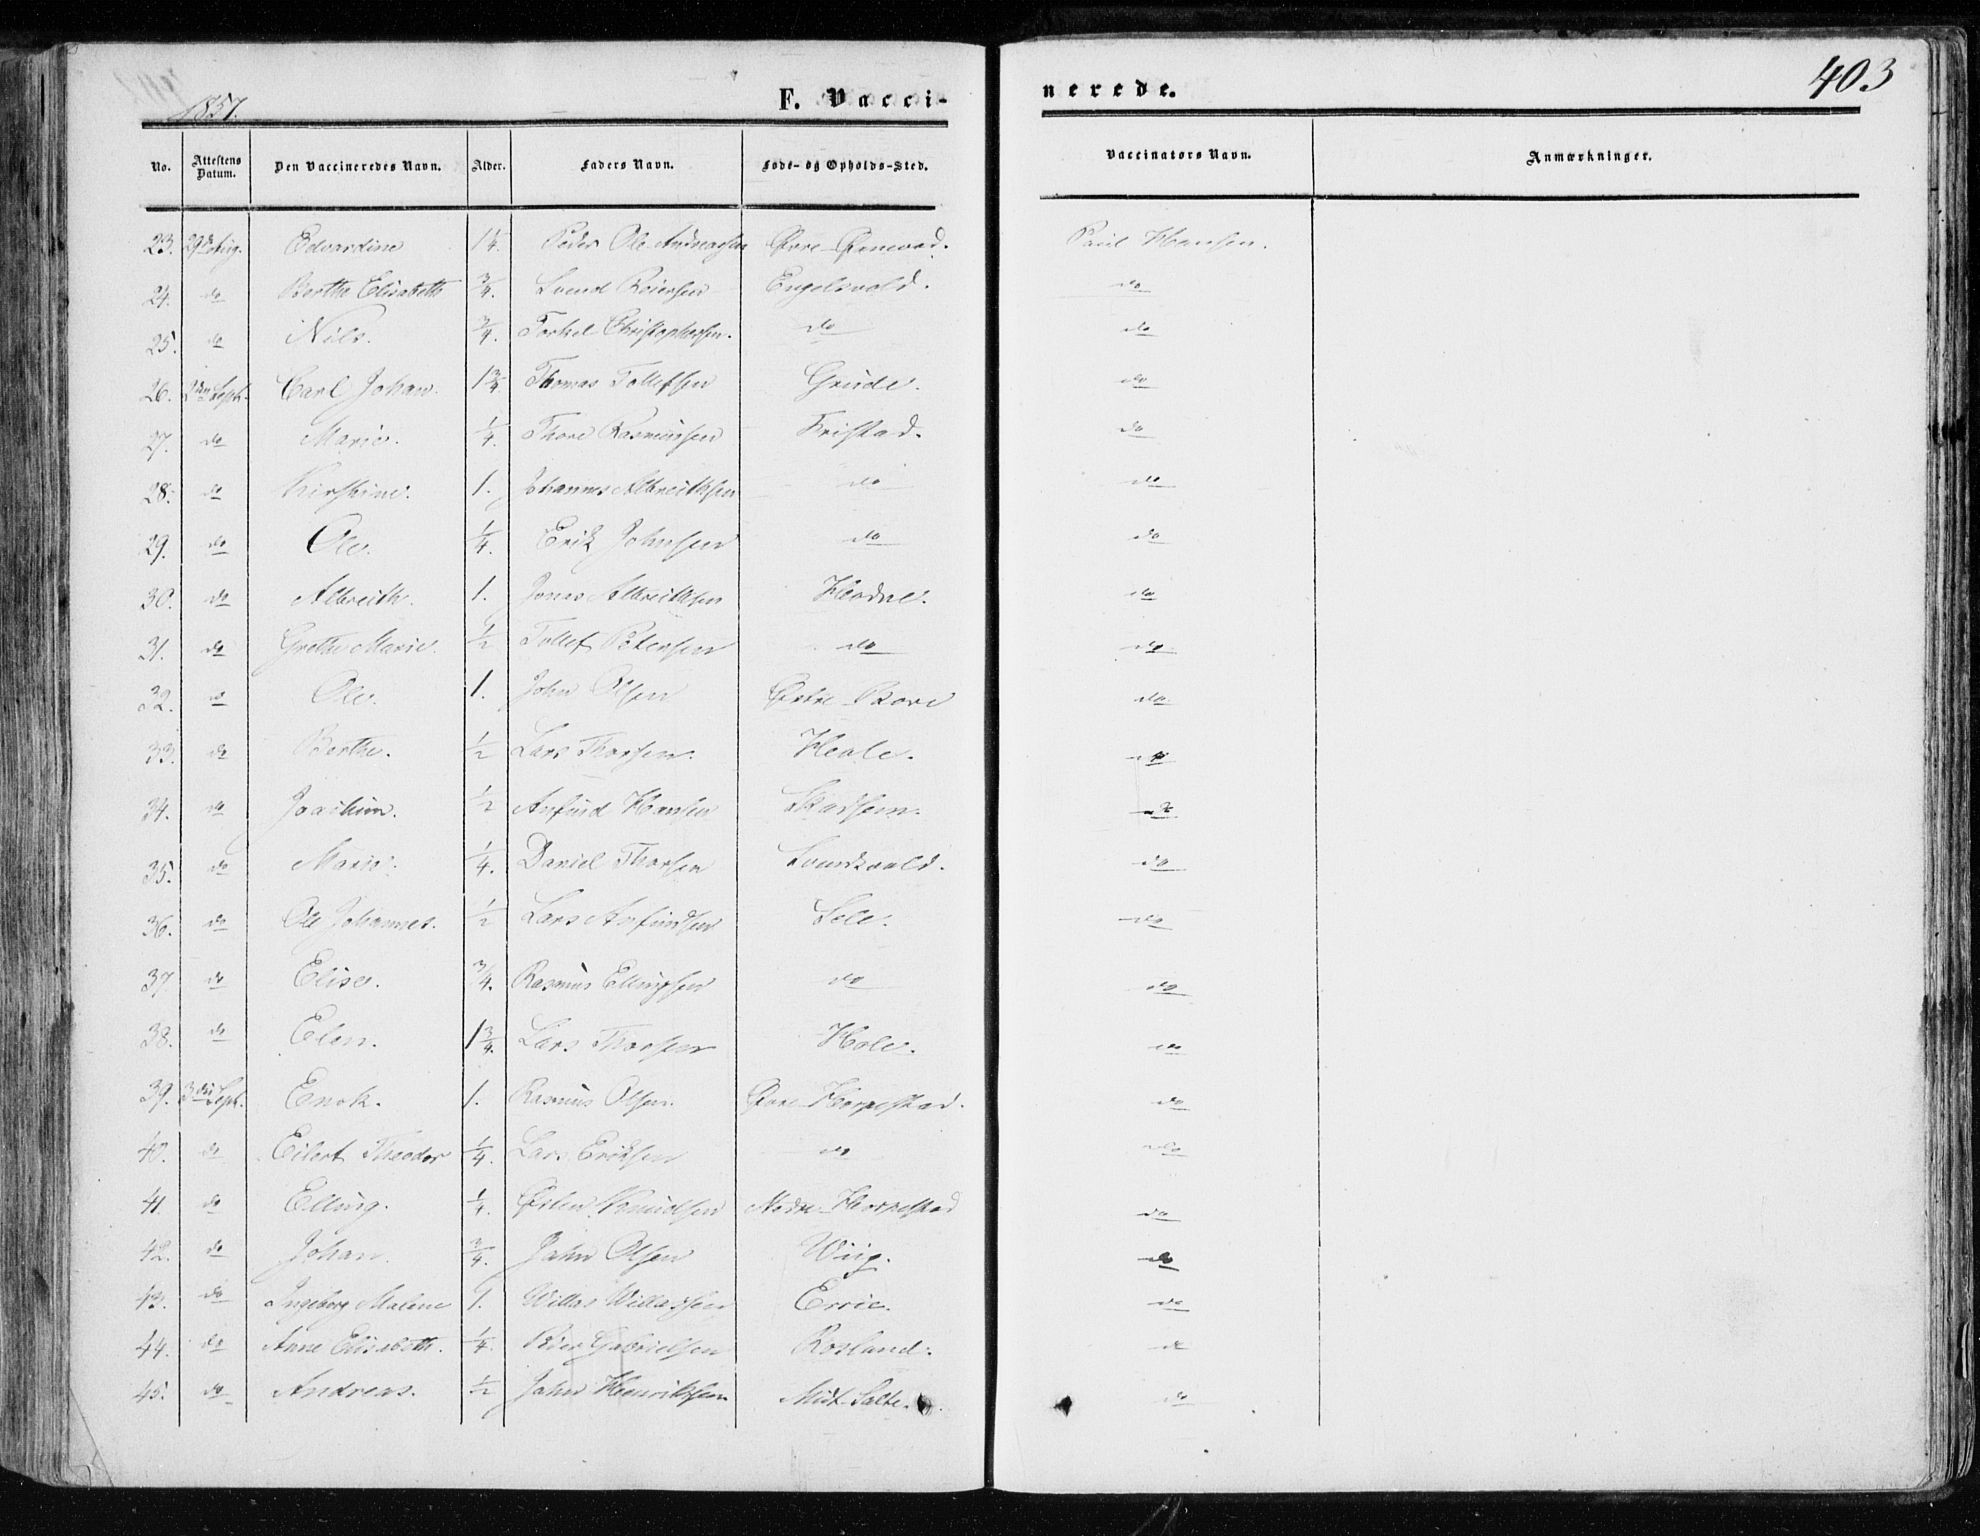 403
1857.
F. Vacci-nerede.
No. | Attestens Datum. | Den Vaccineredes Navn. | Alder. | Faders Navn. | Føde- og Opholds-Sted. | Vaccinators Navn. | Anmærkninger.
23. | 29de Aug. | Edvardine | 1 1/4. | Peder Ole Andreassen | Øvre | Paul Hansen.
24. | do | Berthe Elisabeth | 3/4. | Svend Reiersen | Engelsvold. | do
25. | do | Nils. | 3/4. | Torkel Christophersen. | do | do
26. | 2den Septr. | Carl Johan. | 1 3/4. | Thomas Tollefsen | Grude. | do
27. | do | Marie. | 1/4. | Thore Rasmussen | Friestad. | do
28. | do | Kirstine. | 1. | Johannes Albreithsen | do | do
29. | do | Ole. | 1/4. | Erik Johnsen | do | do
30. | do | Albreith. | 1. | Jonas Albreithsen | Hodne. | do
31. | do | Grethe Marie. | 1/2 | Tollef Petersen | do | do
32. | do | Ole. | 1. | John Olsen | Østre Bore | do
33. | do | Berthe. | 1/2 | Lars Thorsen. | Hole. | do
34. | do | Joachim. | 1/2 | Anfind Hansen | Skadsem. | do
35. | do | Marie. | 1/4. | Daniel Thorsen | | do
36. | do | Ole Johannes. | 1/2 | Lars Anfindsen | Sele. | do
37 | do | Elise. | 3/4. | Rasmus Ellingsen | do | do
38. | do | Elen. | 1 3/4. | Lars Thorsen | Hole. | do
39. | 3die Septr. | Enok. | 1. | Rasmus Olsen. | Øvre Horpestad. | do
40. | do | Eilert Theodor | 1/4. | Lars Eriksen | do | do
41. | do | Elling. | 1/4. | Østen Knudsen | Nedre Horpestad | do
42. | do | Johan. | 3/4. | John Olsen | Wiig. | do
43. | do | Ingeborg Malene | 1. | Willas Willassen | Ervie. | do
44. | do | Anne Elisabeth. | 1/4. | Peder Gabrielsen | Rosland. | do
45. | do | Andreas. | 1/2 | John Henriksen. | Midt Salte. | do